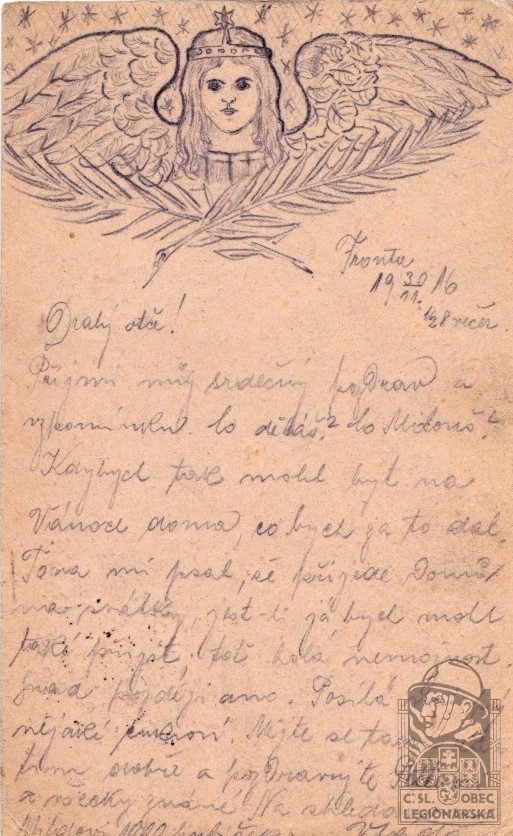 Fronta
19 30/11. 16
1/28 večer
Drahý otče!
Přijmi můj srdečný pozdrav a
vzpomínku. Co děláš? Co Milouš?
Kdybych tak mohl být na
Vánoce doma, co bych já to dal.
Tóna mi psal, že přijede domů
na svátky, jest-li já bych mohl
také přijít, toť holá nemožnost.
Snad později ano. Posílá
nějaké Mějte se
tam dobře a pozdravujte
a všecky známé Na shleda
Milionů 1000
ČSL. OBEC
LEGIONÁŘSKÁ